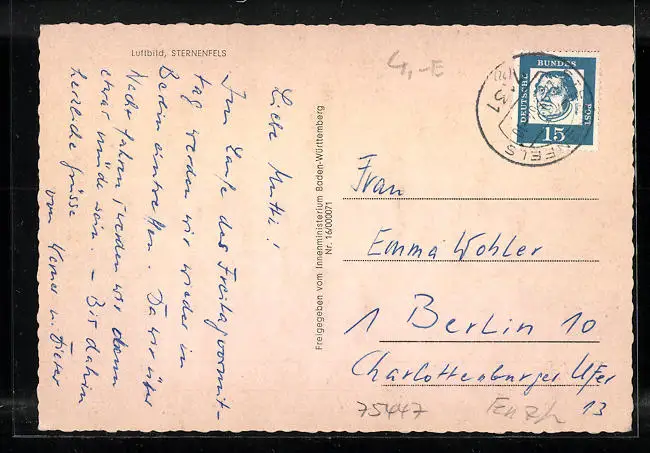 Luftbild, STERNENFELS
Liebe Mutti!
Im Laufe des Freitagvormit-
tag werden wir wieder in
Berlin eintreffen. Da wir über
Nacht fahren werden wir dann
etwas müde sein. – Bis dahin
herzliche Grüsse
von Werner u. Dieter
Freigegeben vom Innenministerium Baden-Württemberg
Nr. 16/000071
4,-E
DEUTSCHE BUNDES POST
15
131
Frau
Emma Wohler
1 Berlin 10
Charlottenburger Ufer
13
75447